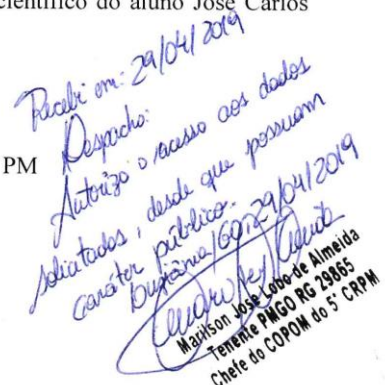 científico do aluno José Carlos
Recebi em: 29/04/2019
PM
Despacho:
Autorizo o acesso aos dados
solicitados, desde que possuam
caráter público.
Luziânia/GO, 29/04/2019
Marilson José Lobo de Almeida
Tenente PMGO RG 29865
Chefe do COPOM do 5º CRPM